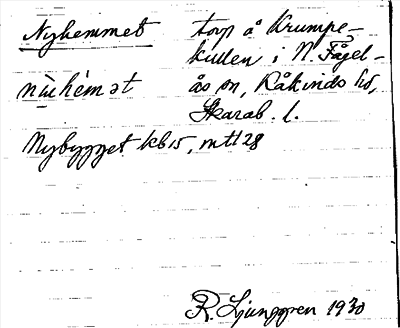 Nyhemmet torp å Krumpe-
kullen i N. Fågel-
nỳhèmət ås sn, Kåkinds hd,
Skarab. l.
Nybygget kb 15, mtl 28
R. Ljunggren 1930